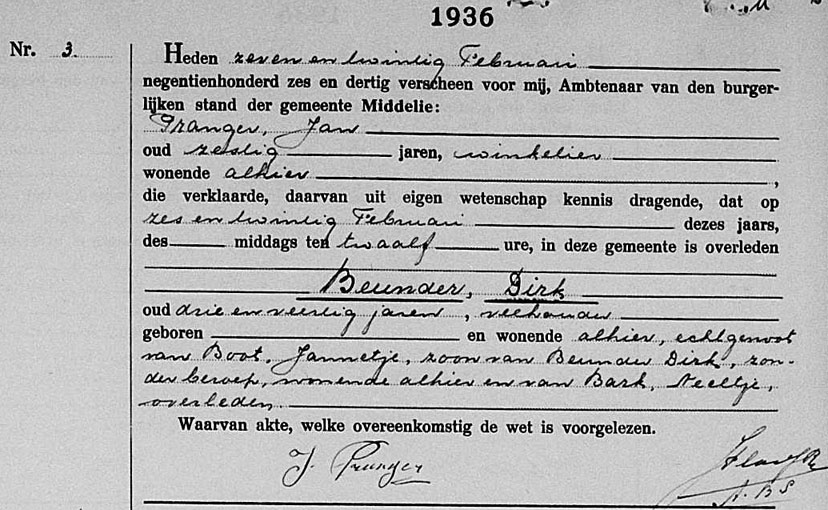 1936
Nr. 3.
Heden zeven en twintig Februari
negentienhonderd zes en dertig verscheen voor mij, Ambtenaar van den burger-
lijken stand der gemeente Middelie:
Pranger, Jan
oud zestig jaren, winkelier
wonende alhier,
die verklaarde, daarvan uit eigen wetenschap kennis dragende, dat op
zes en twintig Februari dezes jaars,
des middags ten twaalf ure, in deze gemeente is overleden
Beunder, Dirk
oud drie en veertig jaren, veehouder
geboren en wonende alhier, echtgenoot
van Boot, Jannetje, zoon van Beunder Dirk, zon-
der beroep, wonende alhier en van Bark, Neeltje,
overleden.
Waarvan akte, welke overeenkomstig de wet is voorgelezen.
J. Pranger
A. B S